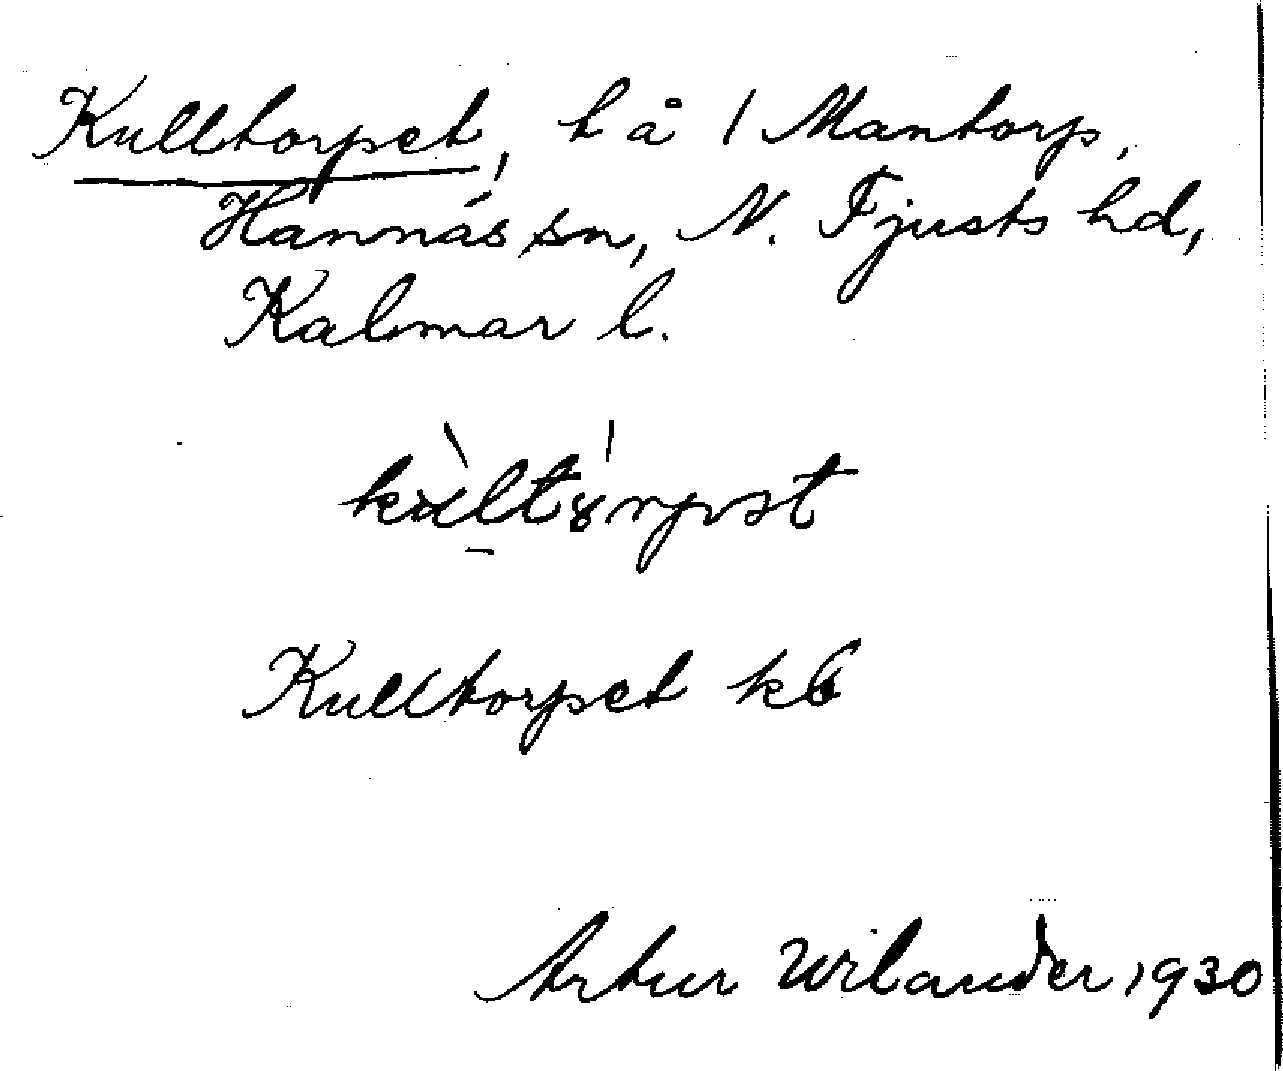 Kulltorpet, t å 1 Mantorp,
Hannäs sn, N. Tjusts hd,
Kalmar l.
Kulltorpet kb
Artur Wilander 1930